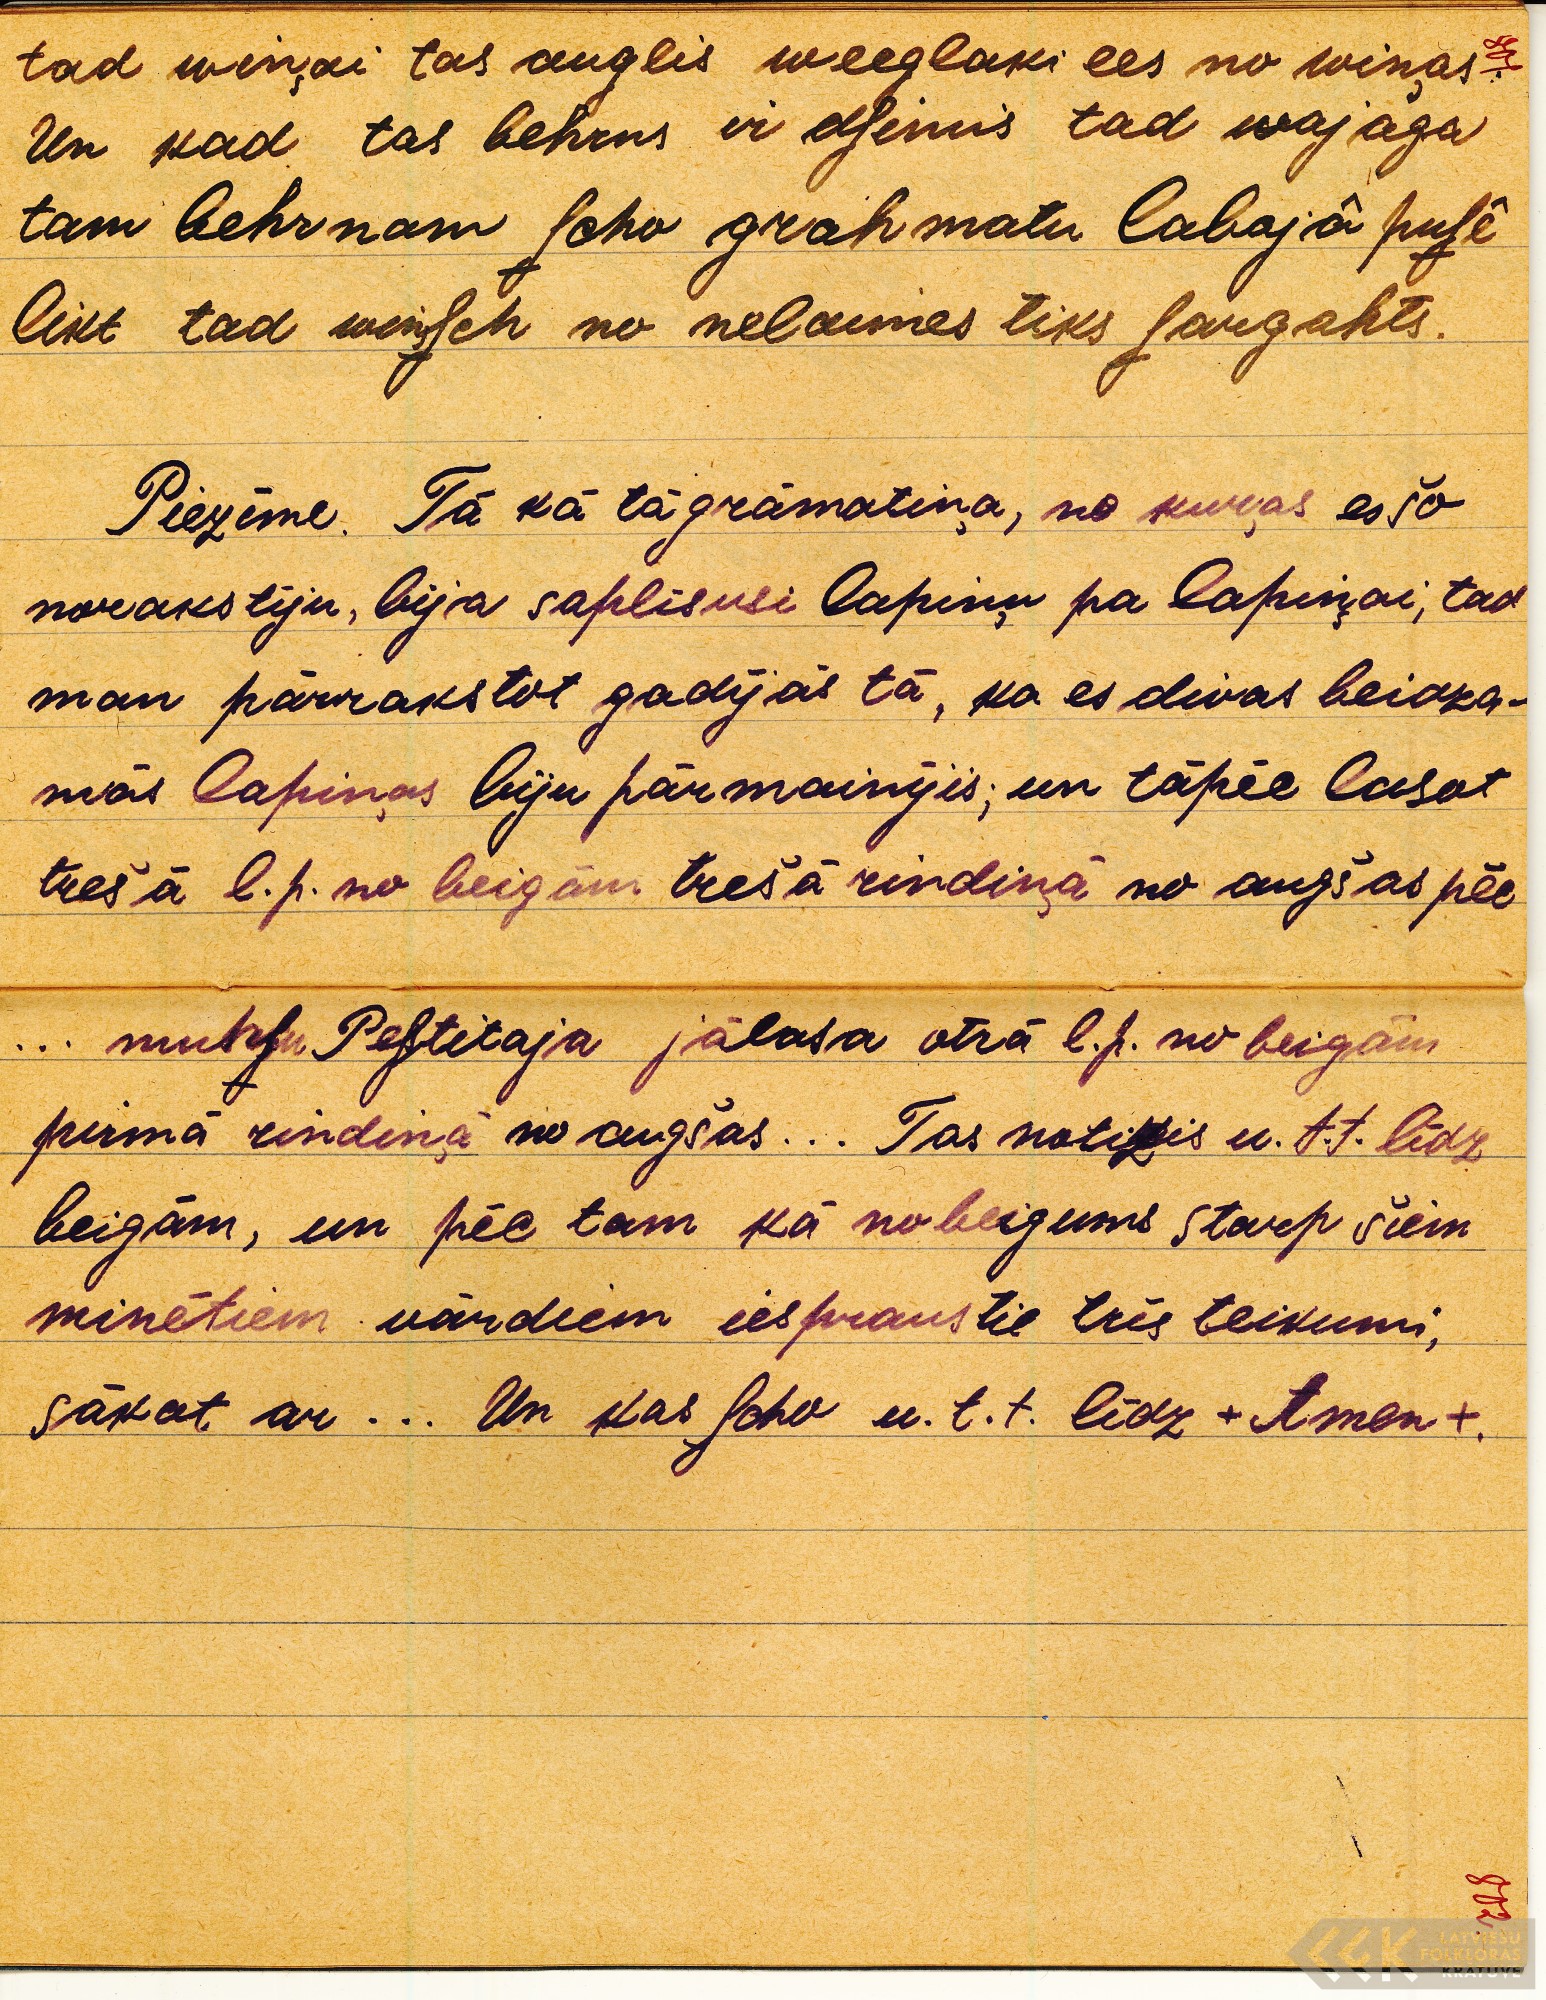 tad wiņai tas auglis weeglaki ees no wiņas.
Un kad tas behrns ir dſimis tad wajaga
tam behrnam ſcho grahmatu labajâ puſê
likt tad wiņſch no nelaimes tiks ſargahts.
Piezīme. Tā kā tā grāmatiņa, no kuŗas es šo
norakstīju, bija saplīsusi lapiņu pa lapiņai, tad
man pārrakstot gadījās tā, ka es divas beidza-
mās lapiņas biju pārmainījis; un tāpēc lasot
trešā l.p. no beigām trešā rindiņā no augšas pēc
... muhſu Peſtitaja jālasa otrā l.p. no beigām
pirmā rindiņā no augšas ... Tas notizis u.t.t. līdz
beigām, un pēc tam kā nobeigums starp šiem
minētiem vārdiem iespraustie trīs teikumi,
sākot ar ... Un kas ſcho u.t.t. līdz + Amen +.
802.
LATVIEŠU
FOLKLORAS
KRĀTUVE